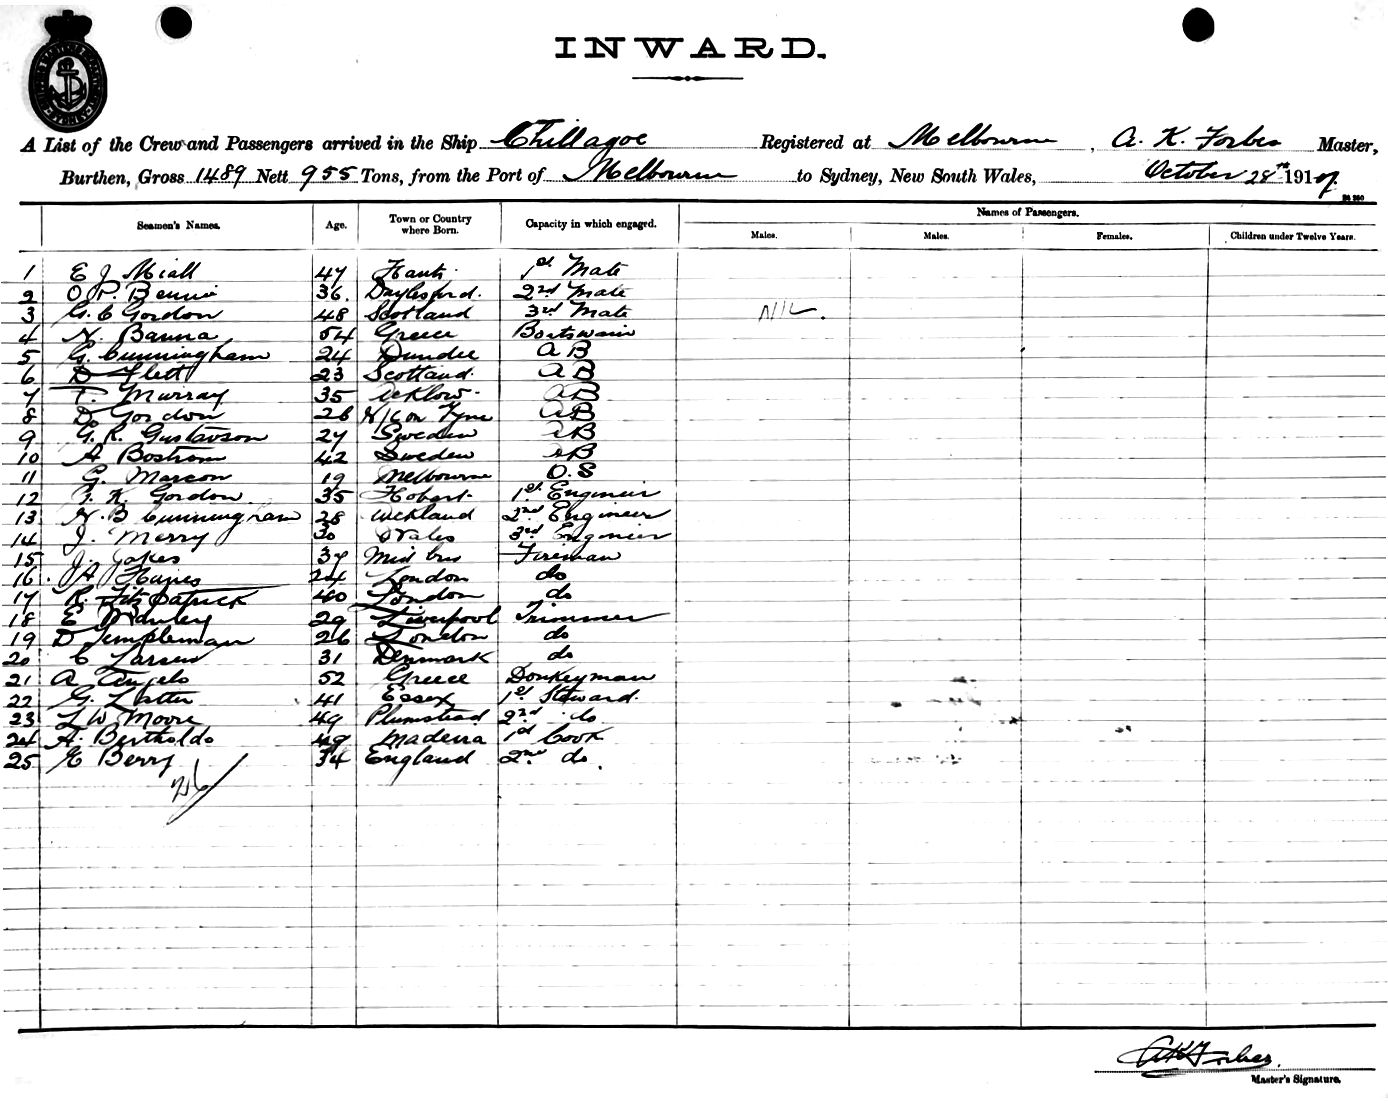 INWARD.
A List of the Crew and Passengers arrived in the Ship Chillagoe Registered at Melbourne, A. K. Forbes Master,
Burthen, Gross 1489 Nett 955 Tons, from the Port of Melbourne to Sydney, New South Wales, October 28th 1917.
Names of Passengers.
Seamen's Names. Age. Town or Country where Born. Capacity in which engaged. Males. Males. Females. Children under Twelve Years.
1 E J Miall 47 Hants. 1st Mate
2 O. P. Bennie 36. Daylesford. 2nd Mate
3 G. C Gordon 48 Scotland 3rd Mate Nil.
4 N. Banna 54 Greece Boatswain
5 G. Cunningham 24 Dundee A B
6 D Flett 23 Scotland. A B
7 T. Murray 35 Arklow. A B
8 D. Gordon 26 N/C on Tyne A B
9 G. R. Gustavson 27 Sweden A B
10 A Bostrom 42 Sweden A B
11 G. Marcon 19 Melbourne O. S
12 J. K. Gordon 35 Hobart. 1st Engineir
13 N. B Cunningham 28 Auckland 2nd Engineer
14 J. Merry 30 Wales 3rd Engineer
15 J. Oakes 37 Fireman
16 J A Hayes 24 London do
17 R. Fitzpatrick 40 London do
18 E Manley 29 Liverpool Trimmer
19 D Templeman 26 London do
20 C Larsen 31 Denmark do
21 A Angelo 52 Greece Donkeyman
22 G. Latter 41 Essex 1st Steward.
23 L W Moore 49 Plumstead 2nd do
24 A. Bertholdo 49 Madeira 1st Cook
25 E Berry 34 England 2nd do.
26/
A K Forbes.
Master's Signature.